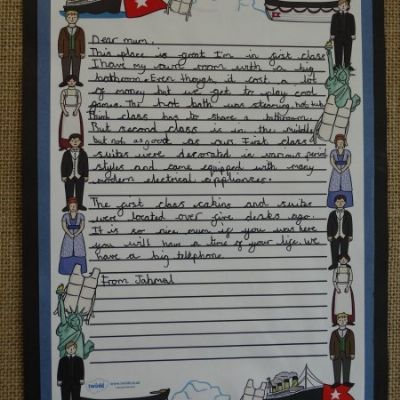 Dear mum,
This place is great I'm in first class
I have my own room with a big
bathroom. Even though it cost a lot
of money but we get to play cool
games. The hot bath was steaming hot
Think class has to share a bathroom.
But second class is in the middle
but not as good as our First class
suites were decorated in various period
styles and came equipped with many
modern electrical appliances.
The first class cabins and suites
were located over five decks ago.
It is so nice mum if you was here
you will have a time of your life. We
have a big telephone.
From Jahmal
twinkl